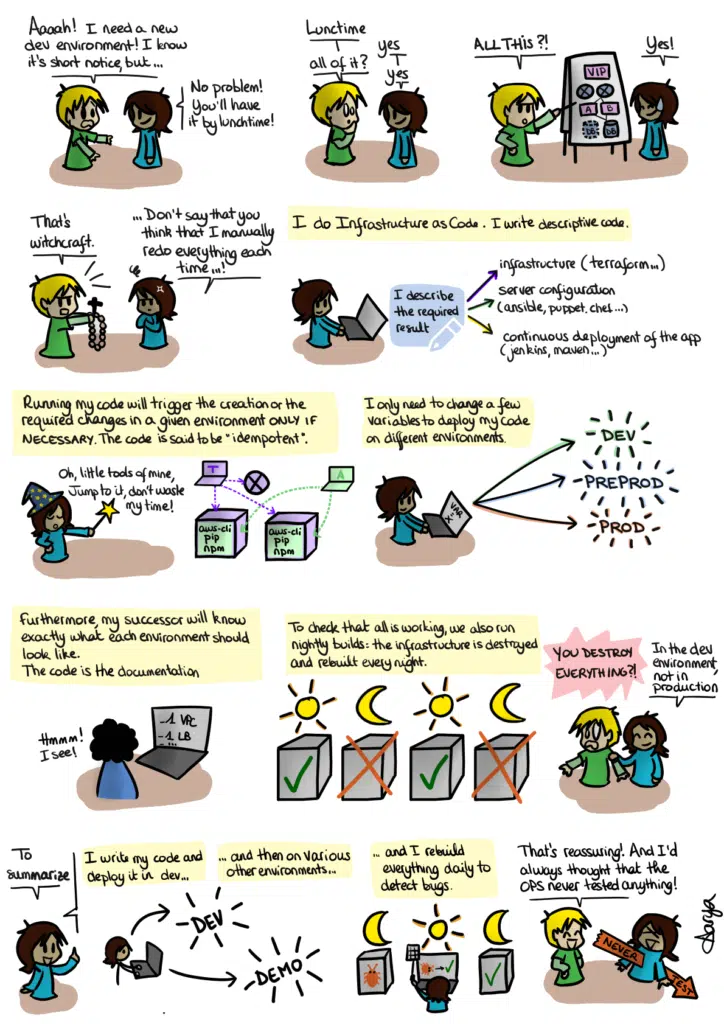 Aaaah! I need a new
dev environment! I know
it's short notice, but...
No problem!
You'll have
it by lunchtime!
Lunctime
all of it?
yes
yes
ALL THIS ?!
Yes!
VIP
A
B
DB
DB
That's
witchcraft.
... Don't say that you
think that I manually
redo everything each
time ...!
I do Infrastructure as Code. I write descriptive code.
I describe
the required
result
infrastructure (terraform...)
server configuration
(ansible, puppet, chef...)
continuous deployment of the app
(jenkins, maven...)
Running my code will trigger the creation or the
required changes in a given environment ONLY IF
NECESSARY. The code is said to be "idempotent".
Oh, little tools of mine,
Jump to it, don't waste
my time!
T
A
aws-cli
pip
npm
aws-cli
pip
npm
I only need to change a few
variables to deploy my code
on different environments.
VAR
X
DEV
PREPROD
PROD
Furthermore, my successor will know
exactly what each environment should
look like.
The code is the documentation
Hmmm!
I see!
-1 VPC
-1 LB
- ...
To check that all is working, we also run
nightly builds: the infrastructure is destroyed
and rebuilt every night.
YOU DESTROY
EVERYTHING?!
In the dev
environment,
not in
production
To
summarize
I write my code and
deploy it in dev...
... and then on various
other environments...
DEV
DEMO
... and I rebuild
everything daily to
detect bugs.
That's reassuring! And I'd
always thought that the
OPS never tested anything!
NEVER
TEST
Aarya